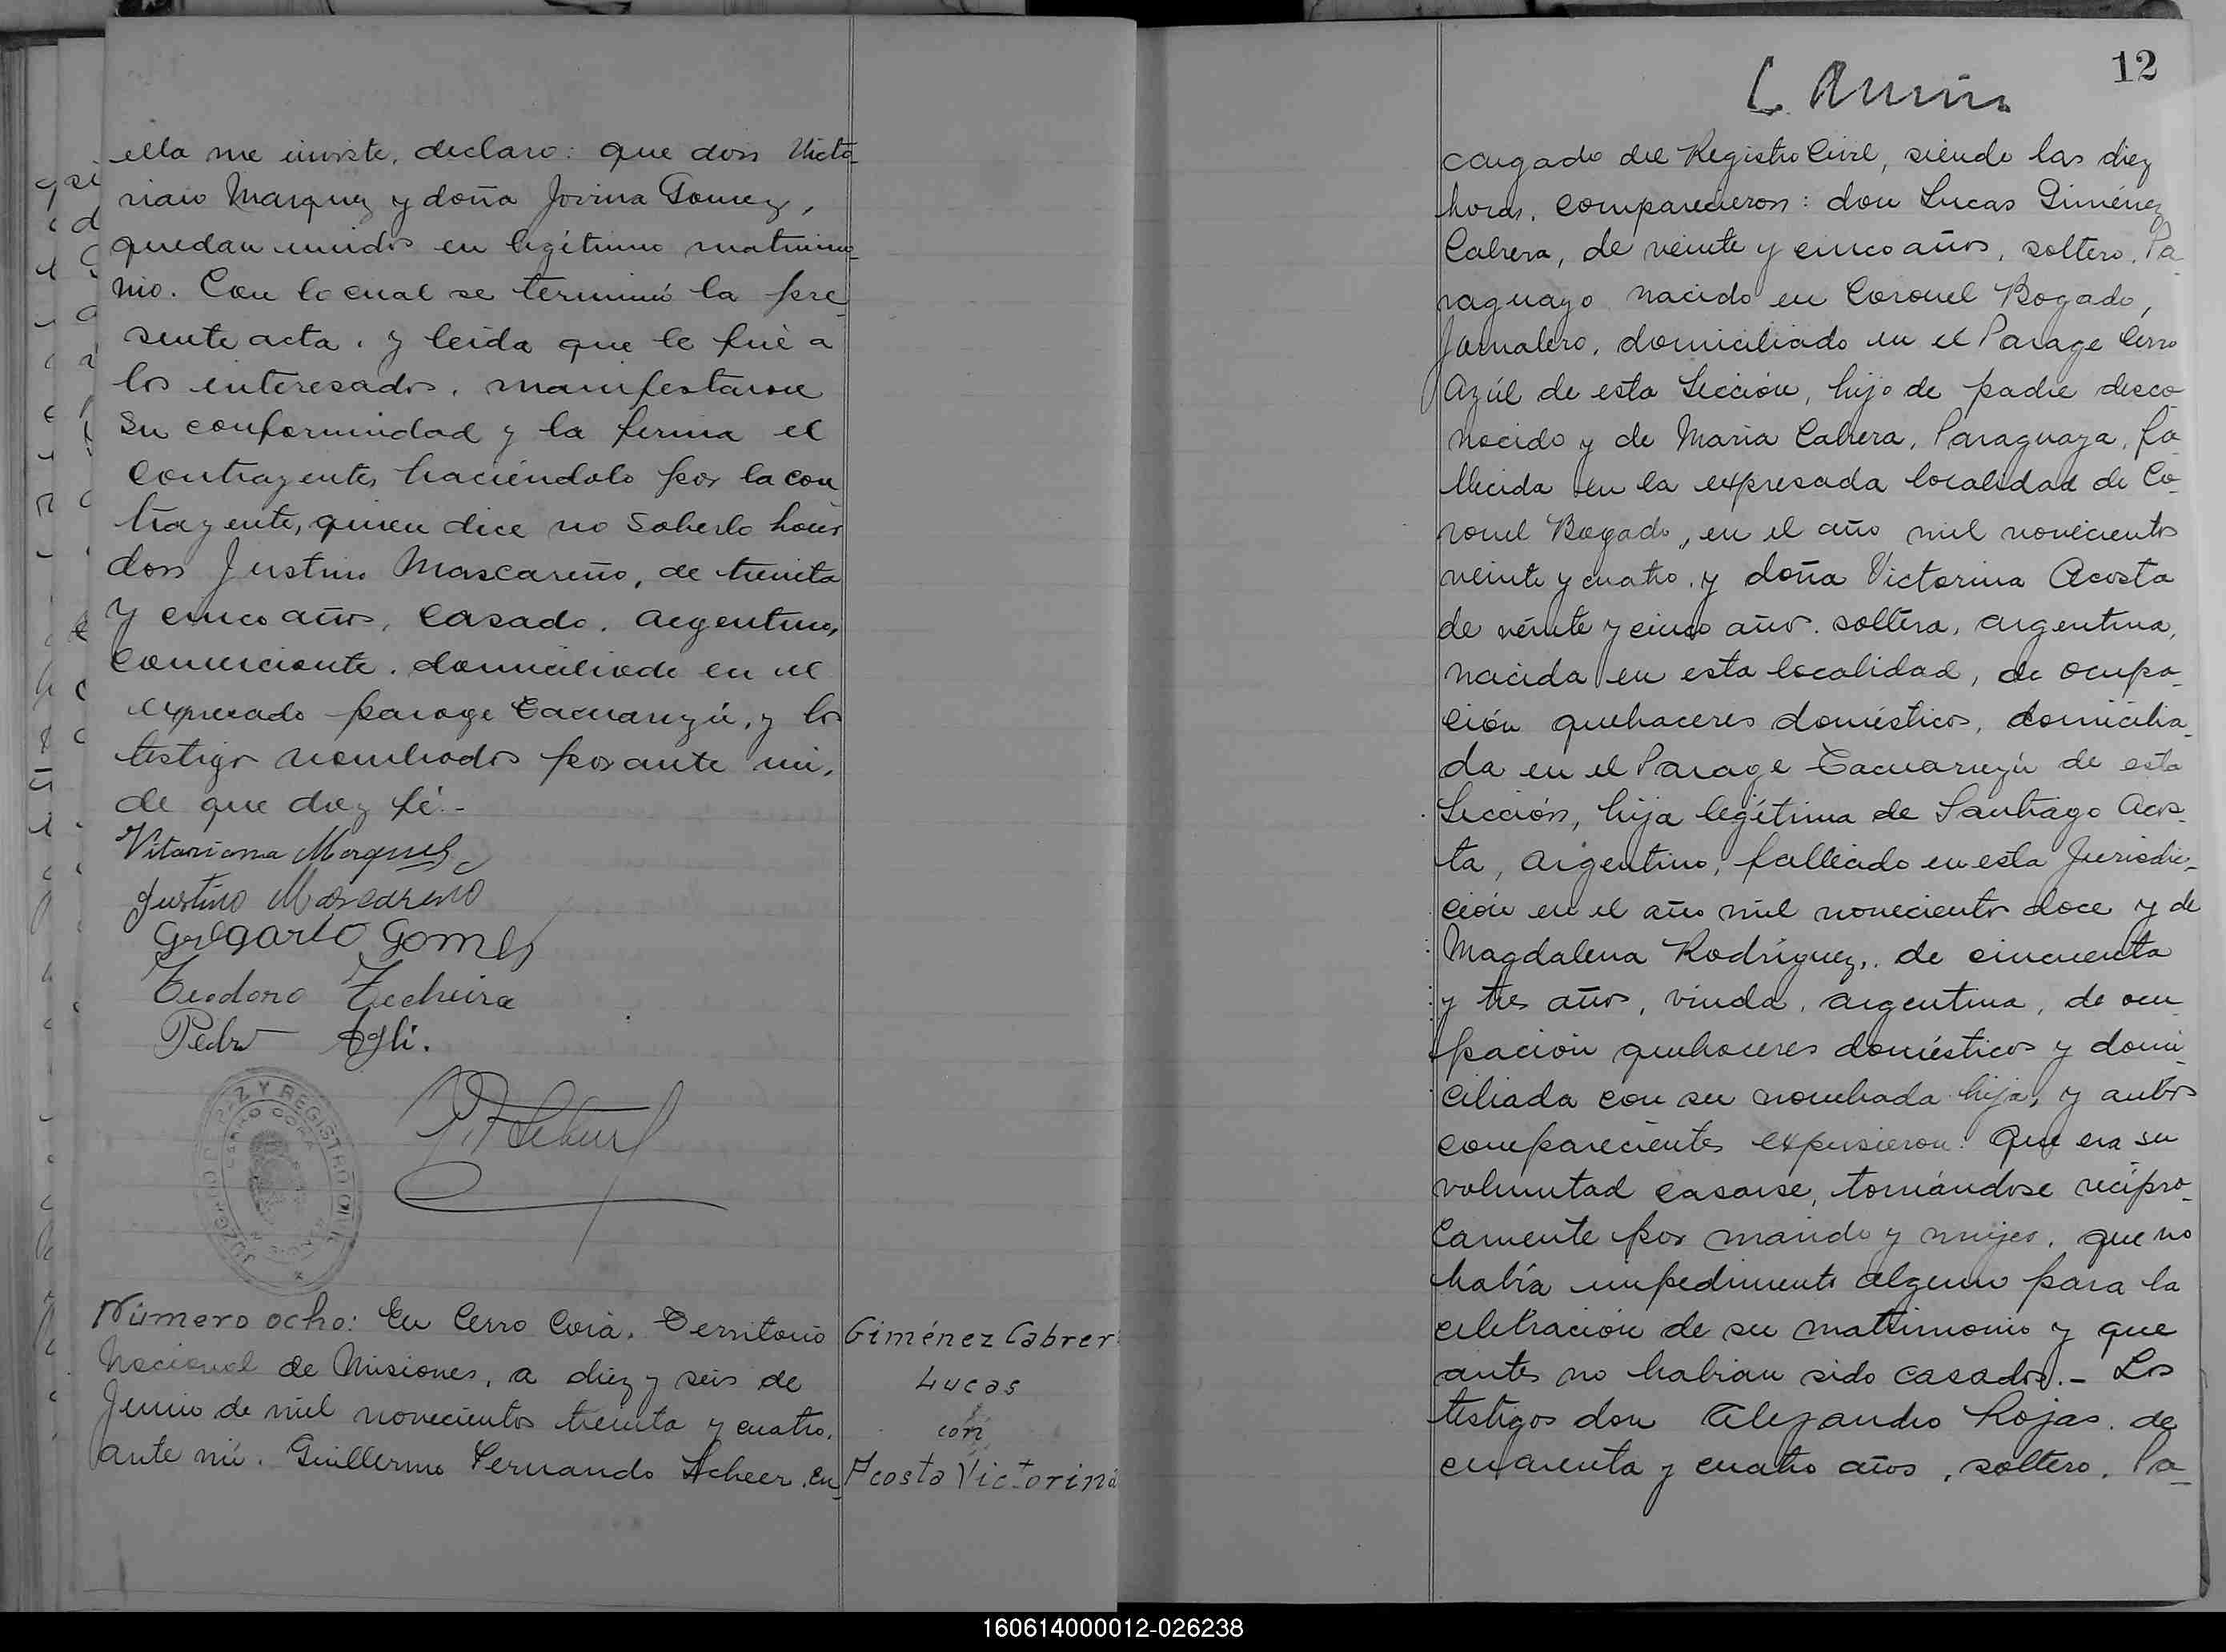 ella me inviste, declaro: que don Victo-
riano Marquez y doña Jovina Gomez,
quedan unidos en legítimo matrimo-
nio. Con lo cual se terminó la pre-
sente acta, y leida que le fué a
los interesados, manifestaron
su conformidad y la firma el
contrayente, haciéndolo por la con-
trayente, quien dice no saberlo hacer
don Justino Mascareño, de treinta
y cinco años, casado, argentino,
comerciante, domiciliado en el
expresado parage Tacuaruzú, y los
testigos nombrados por ante mi,
de que doy fé.-
Vitoriana Marquez
Justino Mascareno
Gregorio Gomes
Teodoro Techeira
Pedro
JUZGADO DE PAZ Y REGISTRO CIVIL
CERRO CORÁ
Número ocho: En Cerro Corá, Territorio
Nacional de Misiones, a diez y seis de
Junio de mil novecientos treinta y cuatro,
ante mí, Guillermo Fernando Scheer, En-
Giménez Cabrer
Lucas
con
Acosta Victorina
12
cargado del Registro Civil, siendo las diez
horas, comparecieron: don Lucas Giménez
Cabrera, de veinte y cinco años, soltero, Pa-
raguayo nacido en Coronel Bogado,
Jornalero, domiciliado en el Parage Cerro
Azúl de esta Sección, hijo de padre desco-
nocido y de Maria Cabrera, Paraguaya, fa-
llecida en la expresada localidad de Co-
ronel Bogado, en el año mil novecientos
veinte y cuatro, y doña Victorina Acosta
de veinte y cinco años, soltera, argentina,
nacida en esta localidad, de ocupa-
ción quehaceres domésticos, domicilia-
da en el Parage Tacuaruzú de esta
Sección, hija legítima de Santiago Acos-
ta, argentino, fallecido en esta Jurisdic-
ción en el año mil novecientos doce y de
Magdalena Rodríguez, de cincuenta
y tres años, viuda, argentina, de ocu-
pación quehaceres domésticos y domi-
ciliada con su nombrada hija, y ambos
comparecientes expusieron: Que era su
voluntad casarse, tomándose recipro-
camente por marido y mujer, que no
había impedimento alguno para la
celebración de su matrimonio y que
antes no habian sido casados.- Los
testigos don Alejandro Rojas, de
cuarenta y cuatro años, soltero, Pa-
160614000012-026238